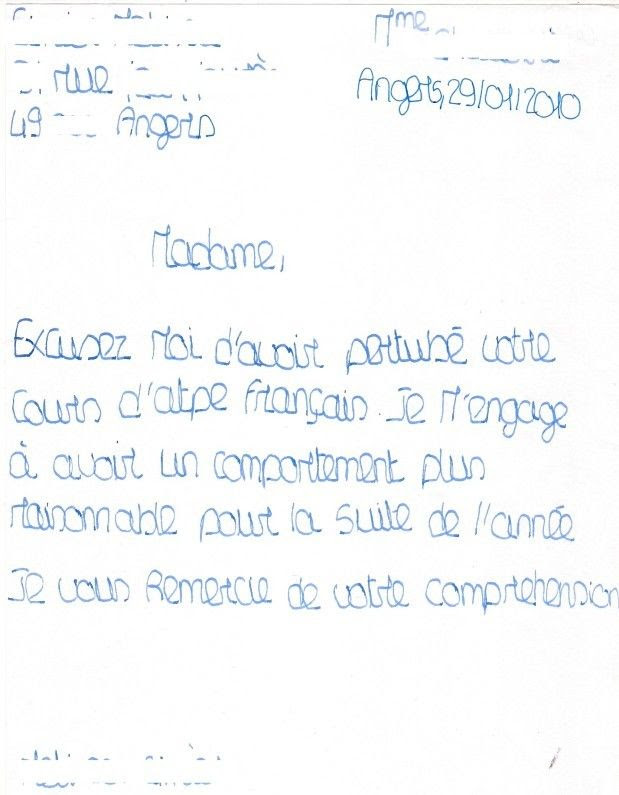 Mme
rue
Angers, 29/01/2010
49 Angers
Madame,
Excusez Moi d'avoir pertubé votre
Cours d'atpe Français. Je M'engage
à avoir un comportement plus
raisonnable pour la suite de l'année
Je vous Remercie de votre comprehension